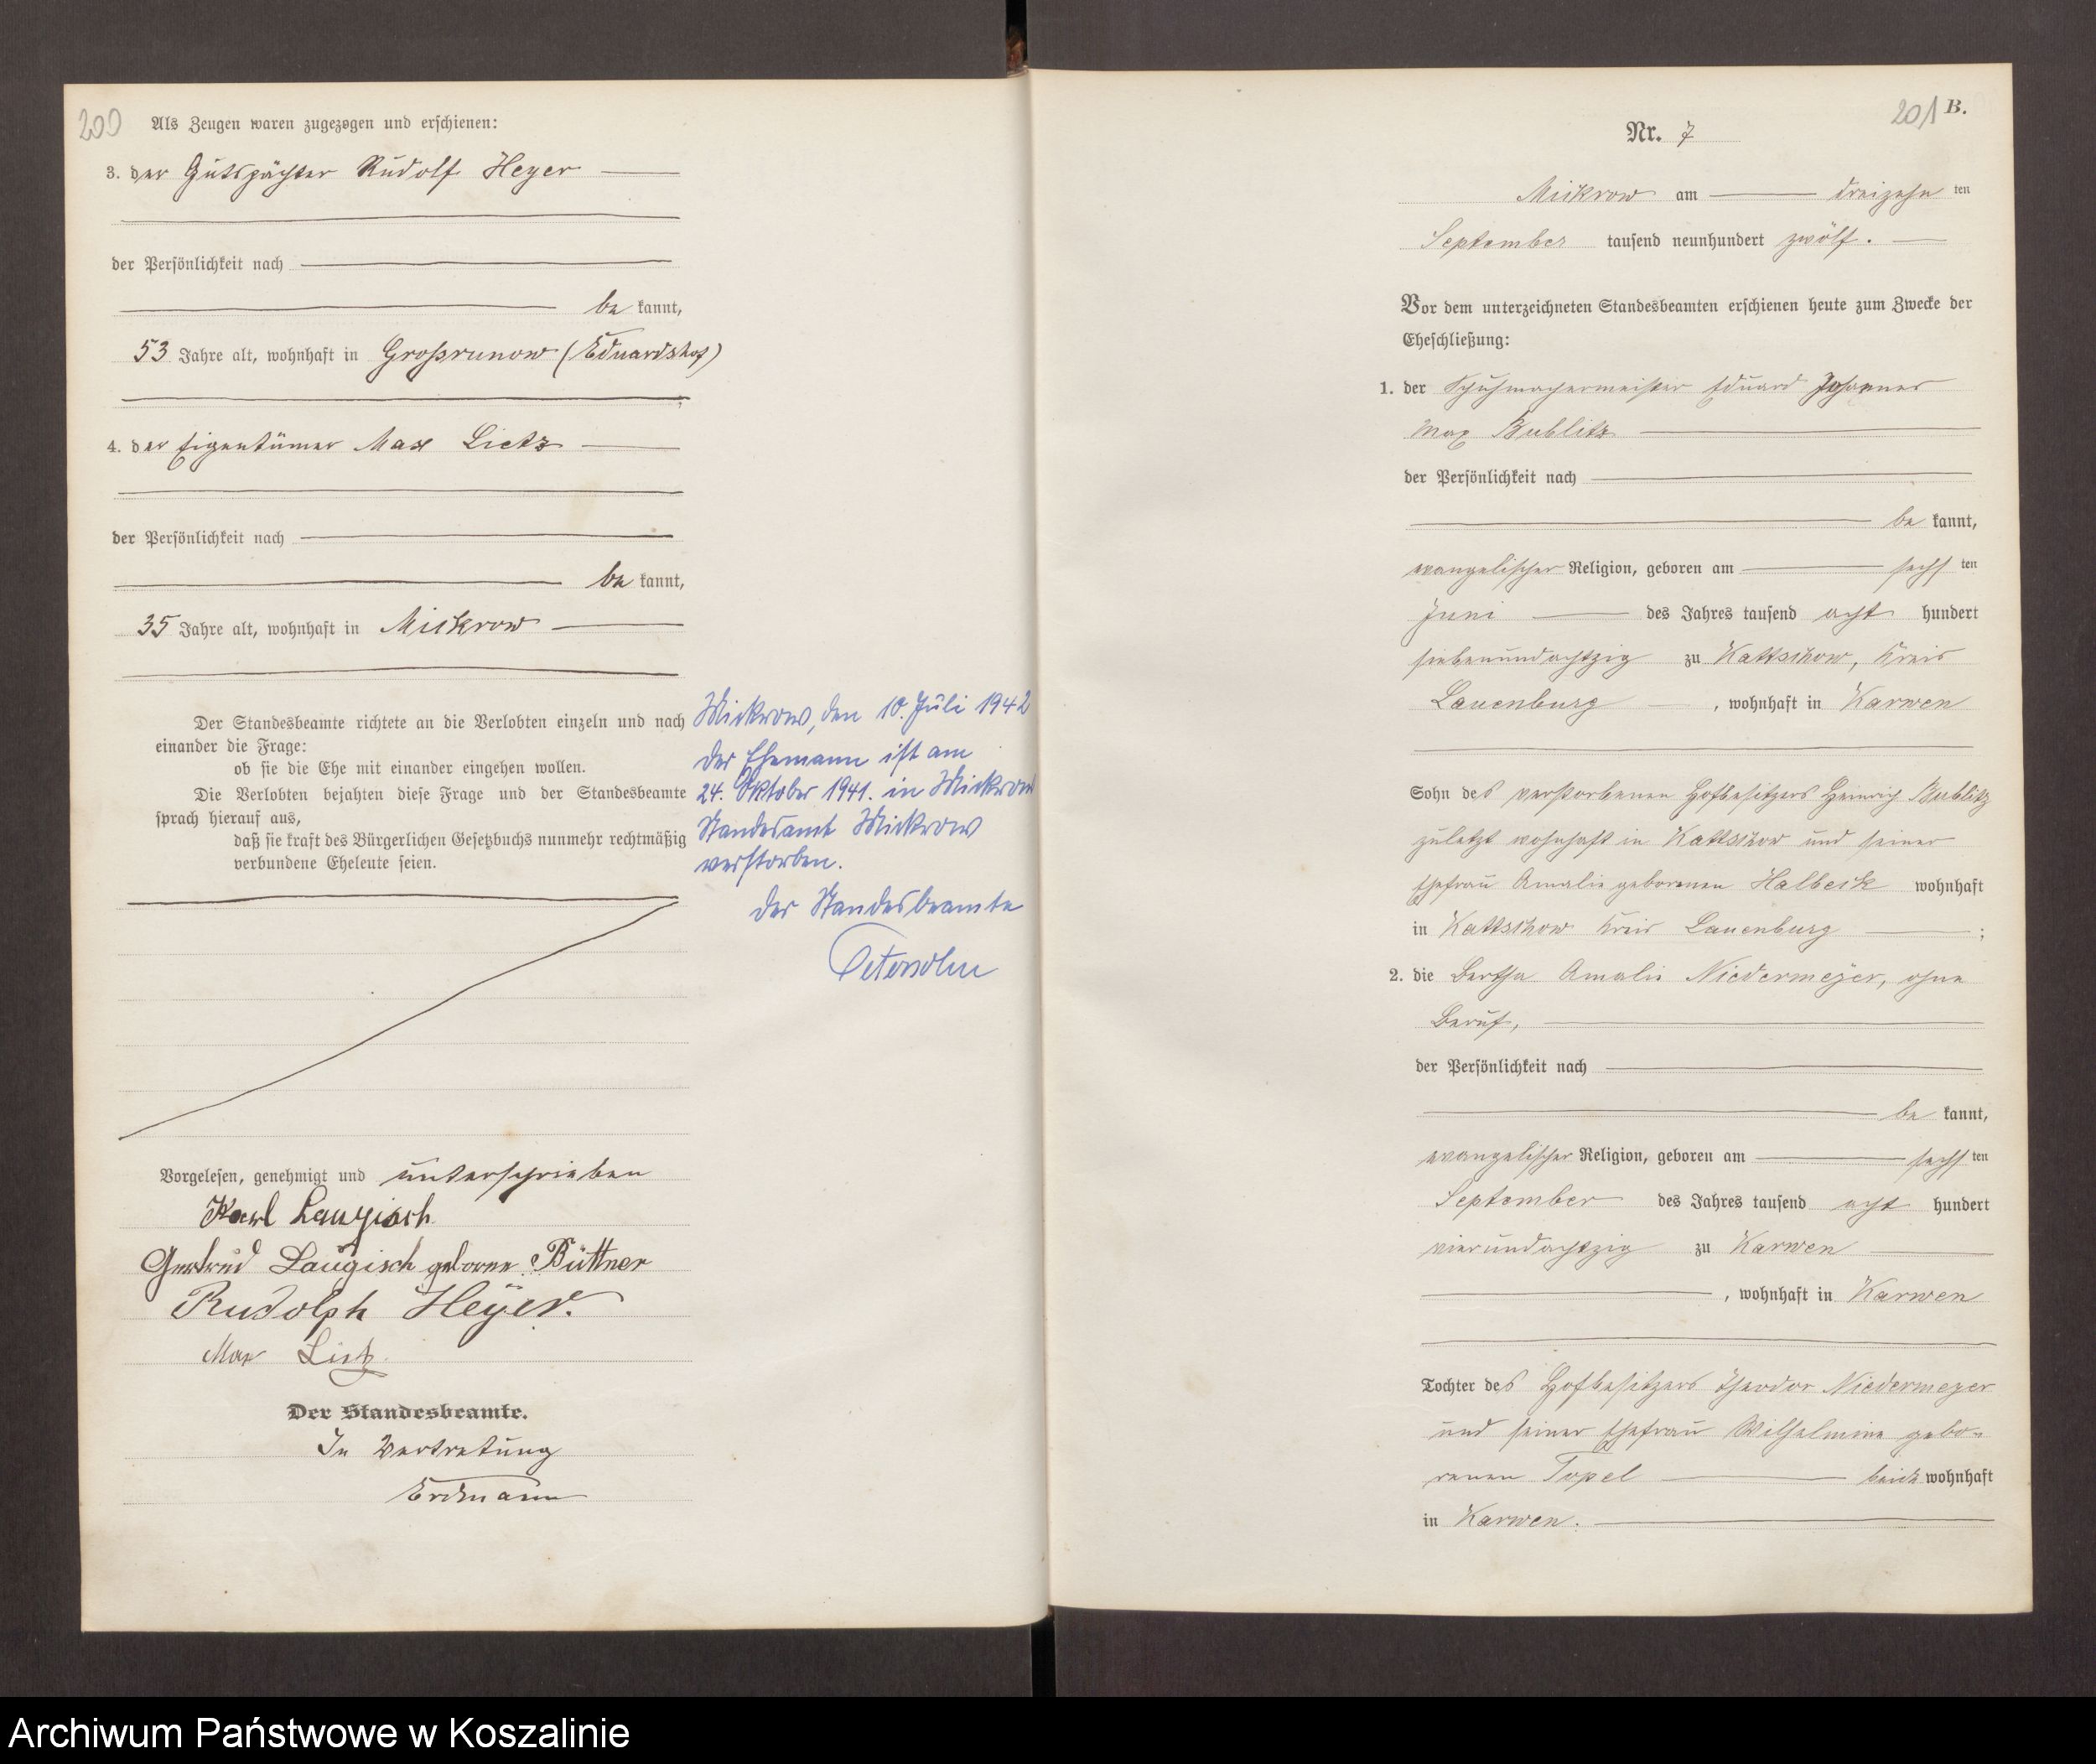 200
Als Zeugen waren zugezogen und erschienen:
3. der Gutspächter Rudolf Heyer
der Persönlichkeit nach
be kannt,
53 Jahre alt, wohnhaft in Großrunow (Eduardshof)
;
4. der Eigentümer Max Lietz
der Persönlichkeit nach
be kannt,
35 Jahre alt, wohnhaft in Mickrow
Der Standesbeamte richtete an die Verlobten einzeln und nach
einander die Frage:
ob sie die Ehe mit einander eingehen wollen.
Die Verlobten bejahten diese Frage und der Standesbeamte
sprach hierauf aus,
daß sie kraft des Bürgerlichen Gesetzbuchs nunmehr rechtmäßig
verbundene Eheleute seien.
Mickrow, den 10. Juli 1942
Der Ehemann ist am
24. Oktober 1941. in Mickrow
Standesamt Mickrow
verstorben.
Der Standesbeamte
Vorgelesen, genehmigt und unterschrieben
Karl Laugisch
Gertrud Laugisch geborene Büttner
Rudolph Heyer.
Max Lietz.
Der Standesbeamte.
In Vertretung
Erdmann
201 B.
Nr. 7
Mickrow am dreizehn ten
September tausend neunhundert zwölf.
Vor dem unterzeichneten Standesbeamten erschienen heute zum Zwecke der
Eheschließung:
1. der Schuhmachermeister Eduard Johannes
Max Bublitz
der Persönlichkeit nach
be kannt,
evangelischer Religion, geboren am sechs ten
Juni des Jahres tausend acht hundert
siebenundachtzig zu Kattschow, Kreis
Lauenburg , wohnhaft in Karwen
Sohn des verstorbenen Hofbesitzers Heinrich Bublitz
zuletzt wohnhaft in Kattschow und seiner
Ehefrau Amalie geborenen Halbeck wohnhaft
in Kattschow Kreis Lauenburg ;
2. die Bertha Amalie Niedermeyer, ohne
Beruf,
der Persönlichkeit nach
be kannt,
evangelischer Religion, geboren am sechs ten
September des Jahres tausend acht hundert
vierundachtzig zu Karwen
, wohnhaft in Karwen
Tochter des Hofbesitzers Theodor Niedermeyer
und seiner Ehefrau Wilhelmine gebo-
renen Topel beide wohnhaft
in Karwen.
Archiwum Państwowe w Koszalinie